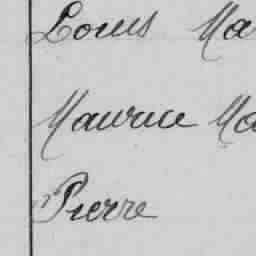 Louis Ma
Maurice Ma
Pierre